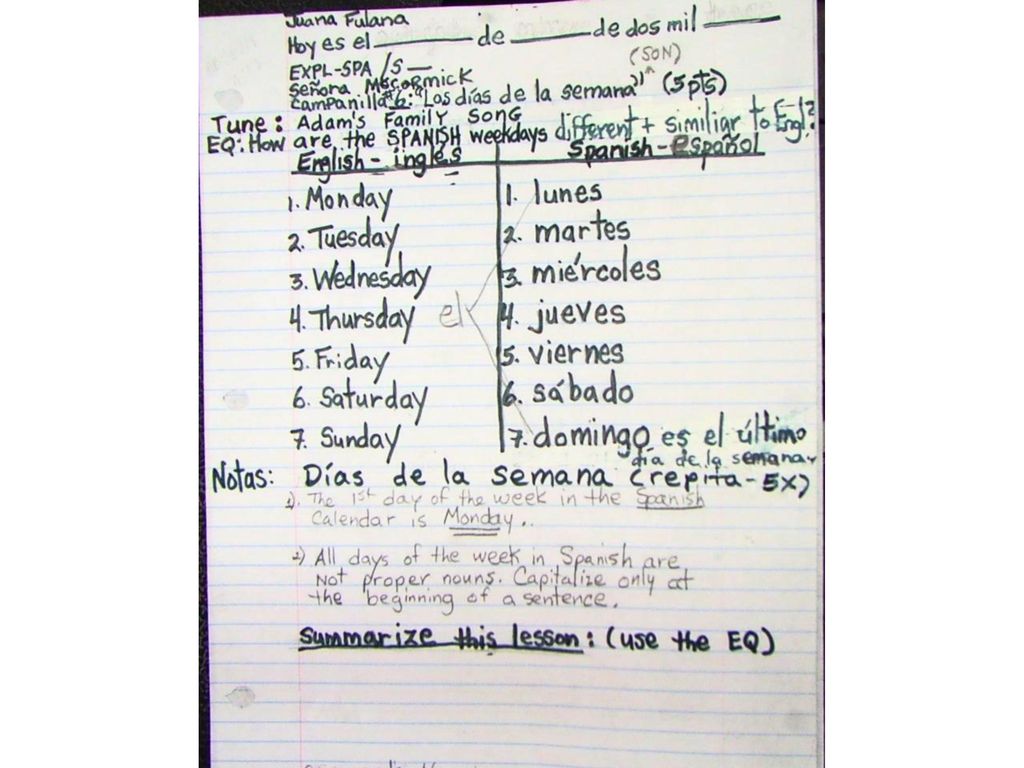 Juana Fulana
Hoy es el ________ de ________ de dos mil ________
(SON)
EXPL-SPA /5 —
Señora McCORMICK
Campanilla #6: "Los días de la semana" (5 pts)
Tune: Adam's Family Song
EQ: How are the SPANISH weekdays different + similiar to Engl?
English - inglés Spanish - español
1. Monday 1. lunes
2. Tuesday 2. martes
3. Wednesday 3. miércoles
4. Thursday el 4. jueves
5. Friday 5. viernes
6. Saturday 6. sábado
7. Sunday 7. domingo es el último
día de la semana.
Notas: Días de la semana (repita - 5X)
1). The 1st day of the week in the Spanish
Calendar is Monday..
2) All days of the week in Spanish are
Not proper nouns. Capitalize only at
the beginning of a sentence.
Summarize this lesson: (use the EQ)